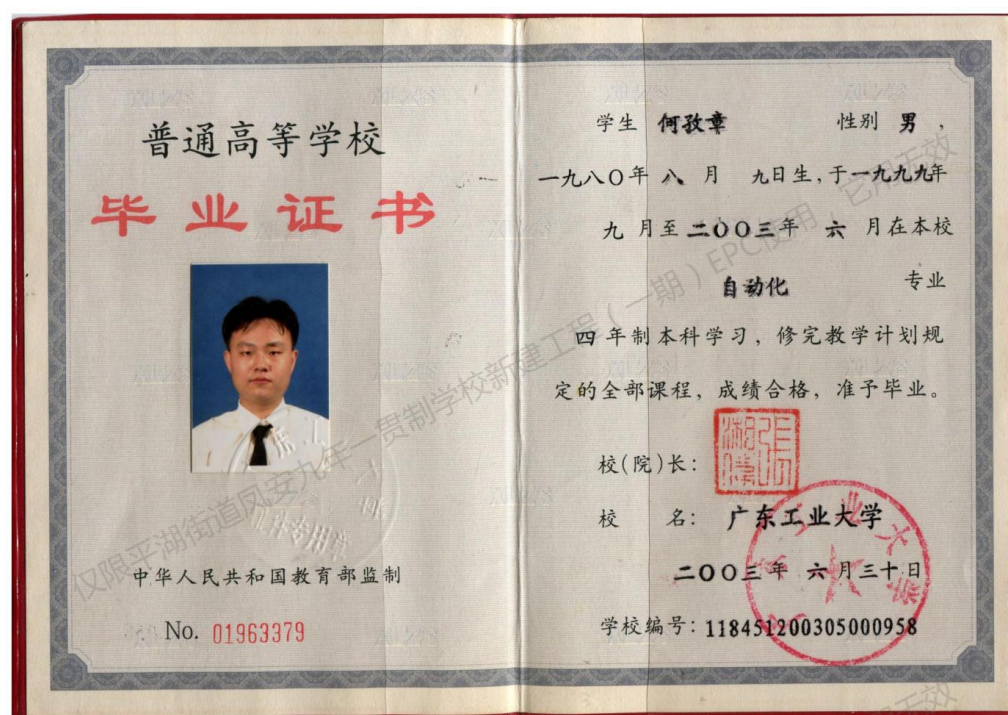 普通高等学校
毕业证书
中华人民共和国教育部监制
No. 01963379
学生 何孜章 性别 男，
一九八〇年 八 月 九日生，于一九九九年
九 月至 二〇〇三年 六 月在本校
自动化 专业
四 年制本科学习，修完教学计划规
定的全部课程，成绩合格，准予毕业。
校(院)长：
校 名： 广东工业大学
二〇〇三年 六月三十日
学校编号：118451200305000958
广东工业大学
仅限平湖街道凤安九年一贯制学校新建工程（一期）EPC使用，它用无效